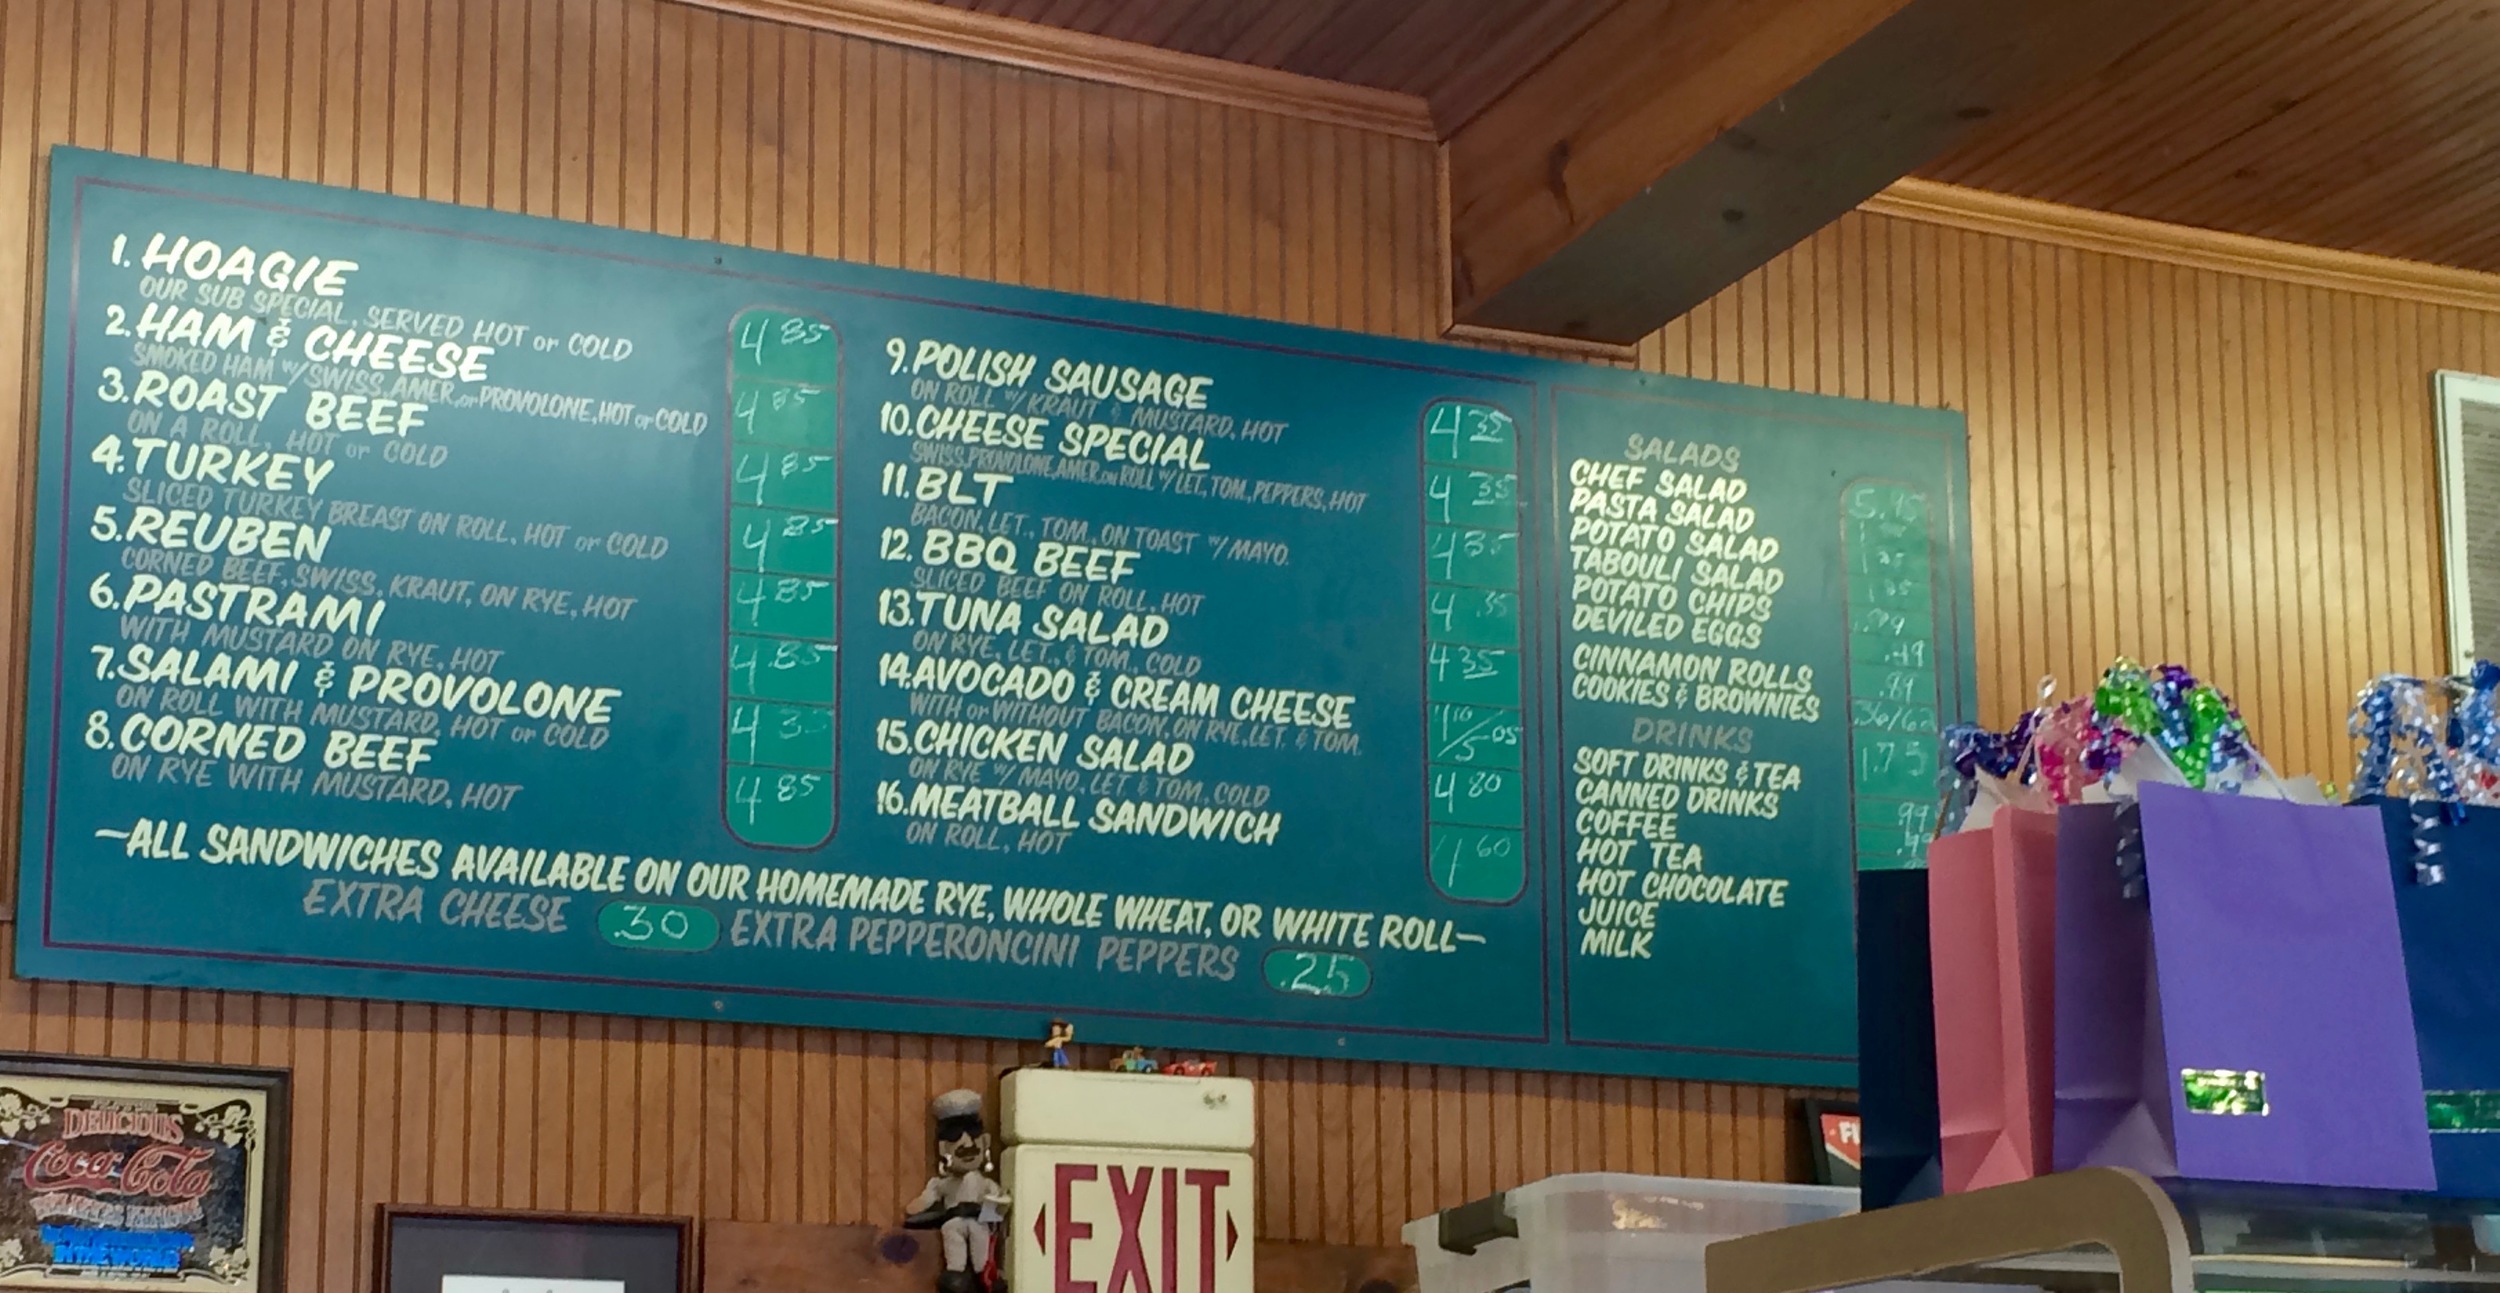 1. HOAGIE
OUR SUB SPECIAL, SERVED HOT or COLD
2. HAM & CHEESE
SMOKED HAM W/SWISS, AMER. or PROVOLONE, HOT or COLD
3. ROAST BEEF
ON A ROLL, HOT or COLD
4. TURKEY
SLICED TURKEY BREAST ON ROLL, HOT or COLD
5. REUBEN
CORNED BEEF, SWISS, KRAUT, ON RYE, HOT
6. PASTRAMI
WITH MUSTARD ON RYE, HOT
7. SALAMI & PROVOLONE
ON ROLL WITH MUSTARD, HOT or COLD
8. CORNED BEEF
ON RYE WITH MUSTARD, HOT
4 85
4 85
4 85
4 85
4 85
4.85
4 85
9. POLISH SAUSAGE
ON ROLL W/KRAUT & MUSTARD, HOT
10. CHEESE SPECIAL
SWISS, PROVOLONE, AMER. on ROLL W/LET, TOM., PEPPERS, HOT
11. BLT
BACON, LET., TOM., ON TOAST W/MAYO.
12. BBQ BEEF
SLICED BEEF ON ROLL, HOT
13. TUNA SALAD
ON RYE, LET., & TOM., COLD
14. AVOCADO & CREAM CHEESE
WITH or WITHOUT BACON, ON RYE, LET. & TOM.
15. CHICKEN SALAD
ON RYE W/MAYO, LET. & TOM, COLD
16. MEATBALL SANDWICH
ON ROLL, HOT
4 35
4 35
4 35
4 35
4 80
4 60
—ALL SANDWICHES AVAILABLE ON OUR HOMEMADE RYE, WHOLE WHEAT, OR WHITE ROLL—
EXTRA CHEESE .30 EXTRA PEPPERONCINI PEPPERS .25
SALADS
CHEF SALAD 5.95
PASTA SALAD
POTATO SALAD
TABOULI SALAD
POTATO CHIPS
DEVILED EGGS .49
CINNAMON ROLLS .89
COOKIES & BROWNIES
DRINKS
SOFT DRINKS & TEA 1.75
CANNED DRINKS .99
COFFEE
HOT TEA
HOT CHOCOLATE
JUICE
MILK
DELICIOUS
Coca-Cola
IN THE WORLD
EXIT